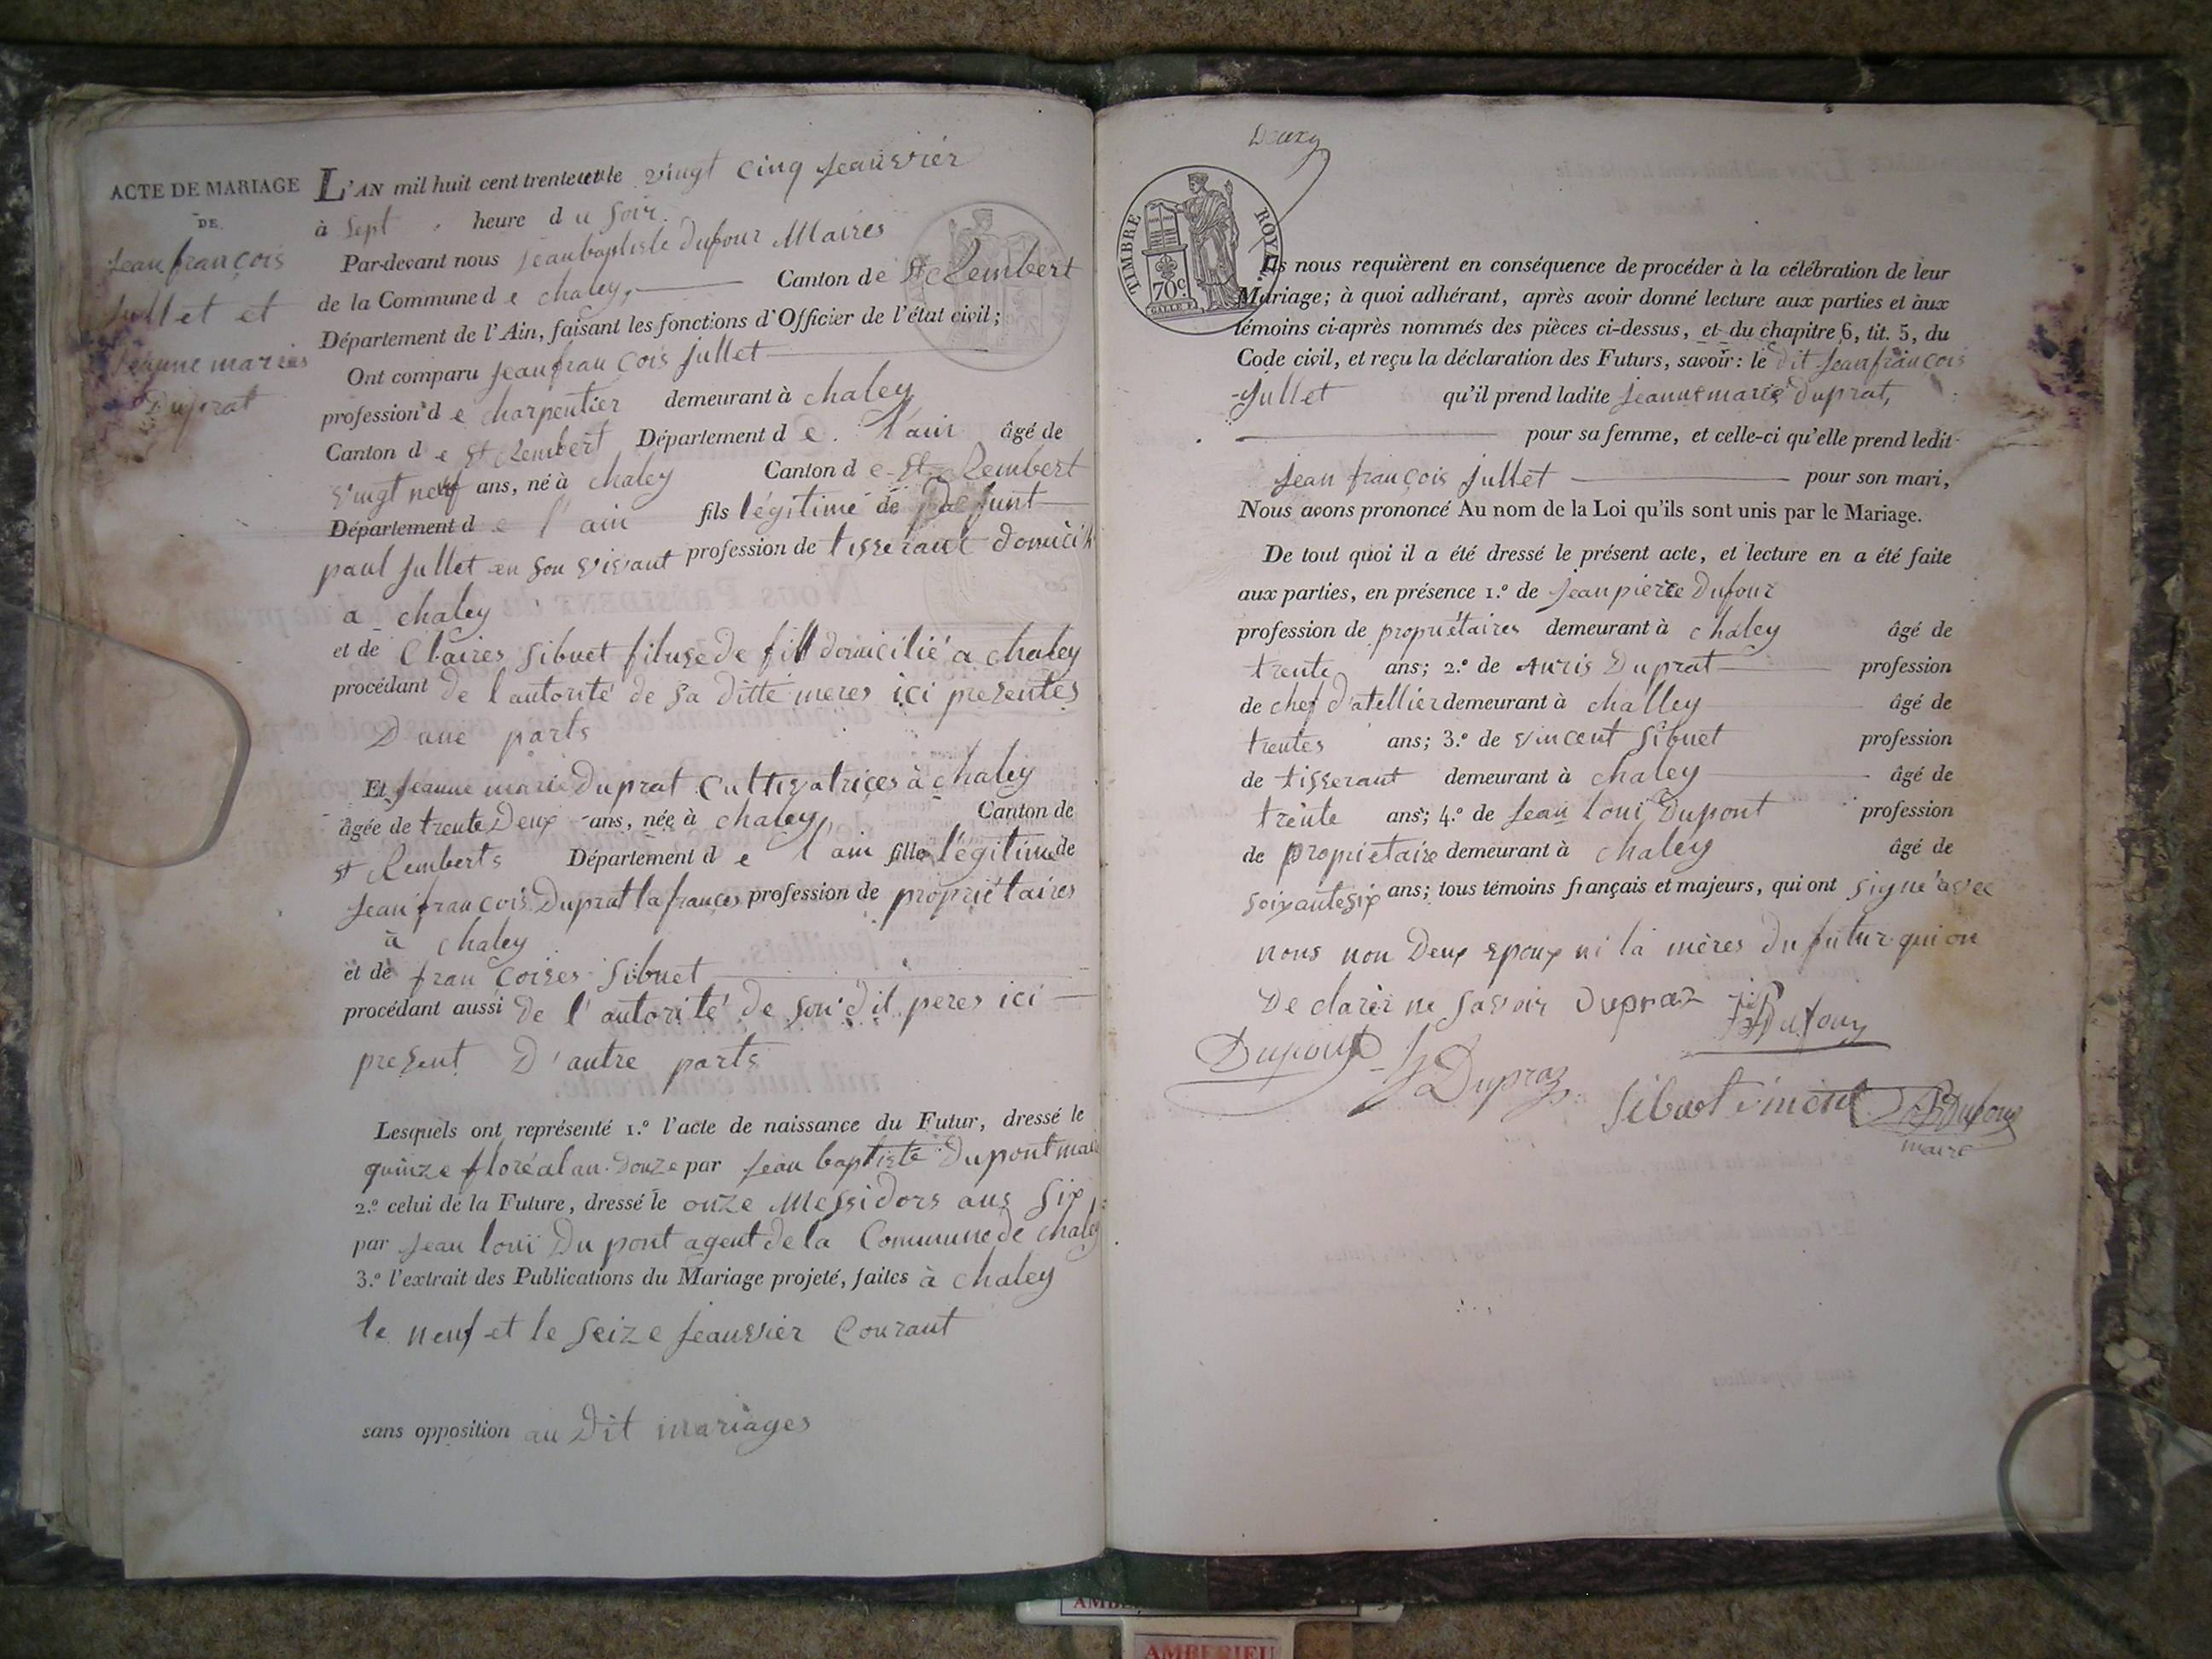 ACTE DE MARIAGE
DE
Jean françois
Jullet et
Jeanne maries
Duprat
L'AN mil huit cent trente et un le vingt cinq Jeanvier
à Sept heure du Soir.
Par-devant nous Jean baptiste Dufour Maires
de la Commune de chaley, Canton de St Rembert
Département de l'Ain, faisant les fonctions d'Officier de l'état civil;
Ont comparu Jean fran çois Jullet
profession de charpentier demeurant à chaley
Canton de St Rembert Département de l'ain âgé de
vingt neuf ans, né à chaley Canton de St Rembert
Département de l'ain fils légitime de Defunt
paul Jullet en Son vivant profession de tisserant domicilié
a chaley
et de Claires Sibuet fileuse de fill domicilié a chaley
procédant de l'autorité de sa ditte meres ici presentes
D'une parts
Et Jeanne marie Duprat Cultivatrices à chaley
âgée de trente Deux ans, née à chaley, Canton de
st Remberts Département de l'ain fille légitime de
Jean fran çois Duprat la frances profession de propriétaires
à chaley
et de fran coises Sibuet
procédant aussi de l'autorité de son dit peres ici
present D'autre parts
Lesquels ont représenté 1.º l'acte de naissance du Futur, dressé le
quinze floréal an Douze par Jean baptiste Dupont mair
2.º celui de la Future, dressé le onze Messidors ans Six
par Jean loui Du pont agent de la Commune de chaley
3.º l'extrait des Publications du Mariage projeté, faites à chaley
le neuf et le Seize Jeanvier Courant
sans opposition au Dit mariages
Deux
TIMBRE ROYAL
70c.
Ils nous requièrent en conséquence de procéder à la célébration de leur
Mariage; à quoi adhérant, après avoir donné lecture aux parties et aux
témoins ci-après nommés des pièces ci-dessus, et du chapitre 6, tit. 5, du
Code civil, et reçu la déclaration des Futurs, savoir: le dit Jean françois
Jullet qu'il prend ladite Jeanne marie Duprat,
pour sa femme, et celle-ci qu'elle prend ledit
Jean françois Jullet pour son mari,
Nous avons prononcé Au nom de la Loi qu'ils sont unis par le Mariage.
De tout quoi il a été dressé le présent acte, et lecture en a été faite
aux parties, en présence 1.º de Jean pierre Dufour
profession de propriétaires demeurant à chaley âgé de
trente ans; 2.º de Duprat profession
de chef d'atellier demeurant à challey âgé de
trentes ans; 3.º de vincent Sibuet profession
de tisserant demeurant à chaley âgé de
trente ans; 4.º de Jean loui Dupont profession
de propriétaire demeurant à chaley âgé de
soixante six ans; tous témoins français et majeurs, qui ont signé avec
nous non Deux epoux ni la mères du futur qui on
De clarér ne Savoir Dupraz Dufour
Dupont Dupraz
Sibuet vincent Dufour
maire
AMBERIEU